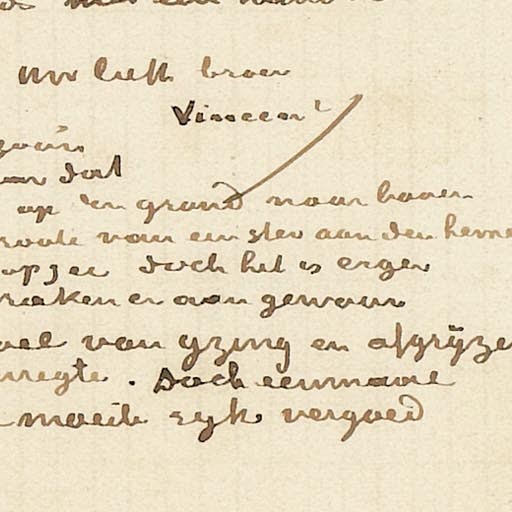 uw liefh broer
Vincent
dat
op den grond naar boven
van een ster aan den heme
doch het is erger
raken er aan gewoon
van yzing en afgrijze
. Doch eenmaal
moeite ryk vergoed